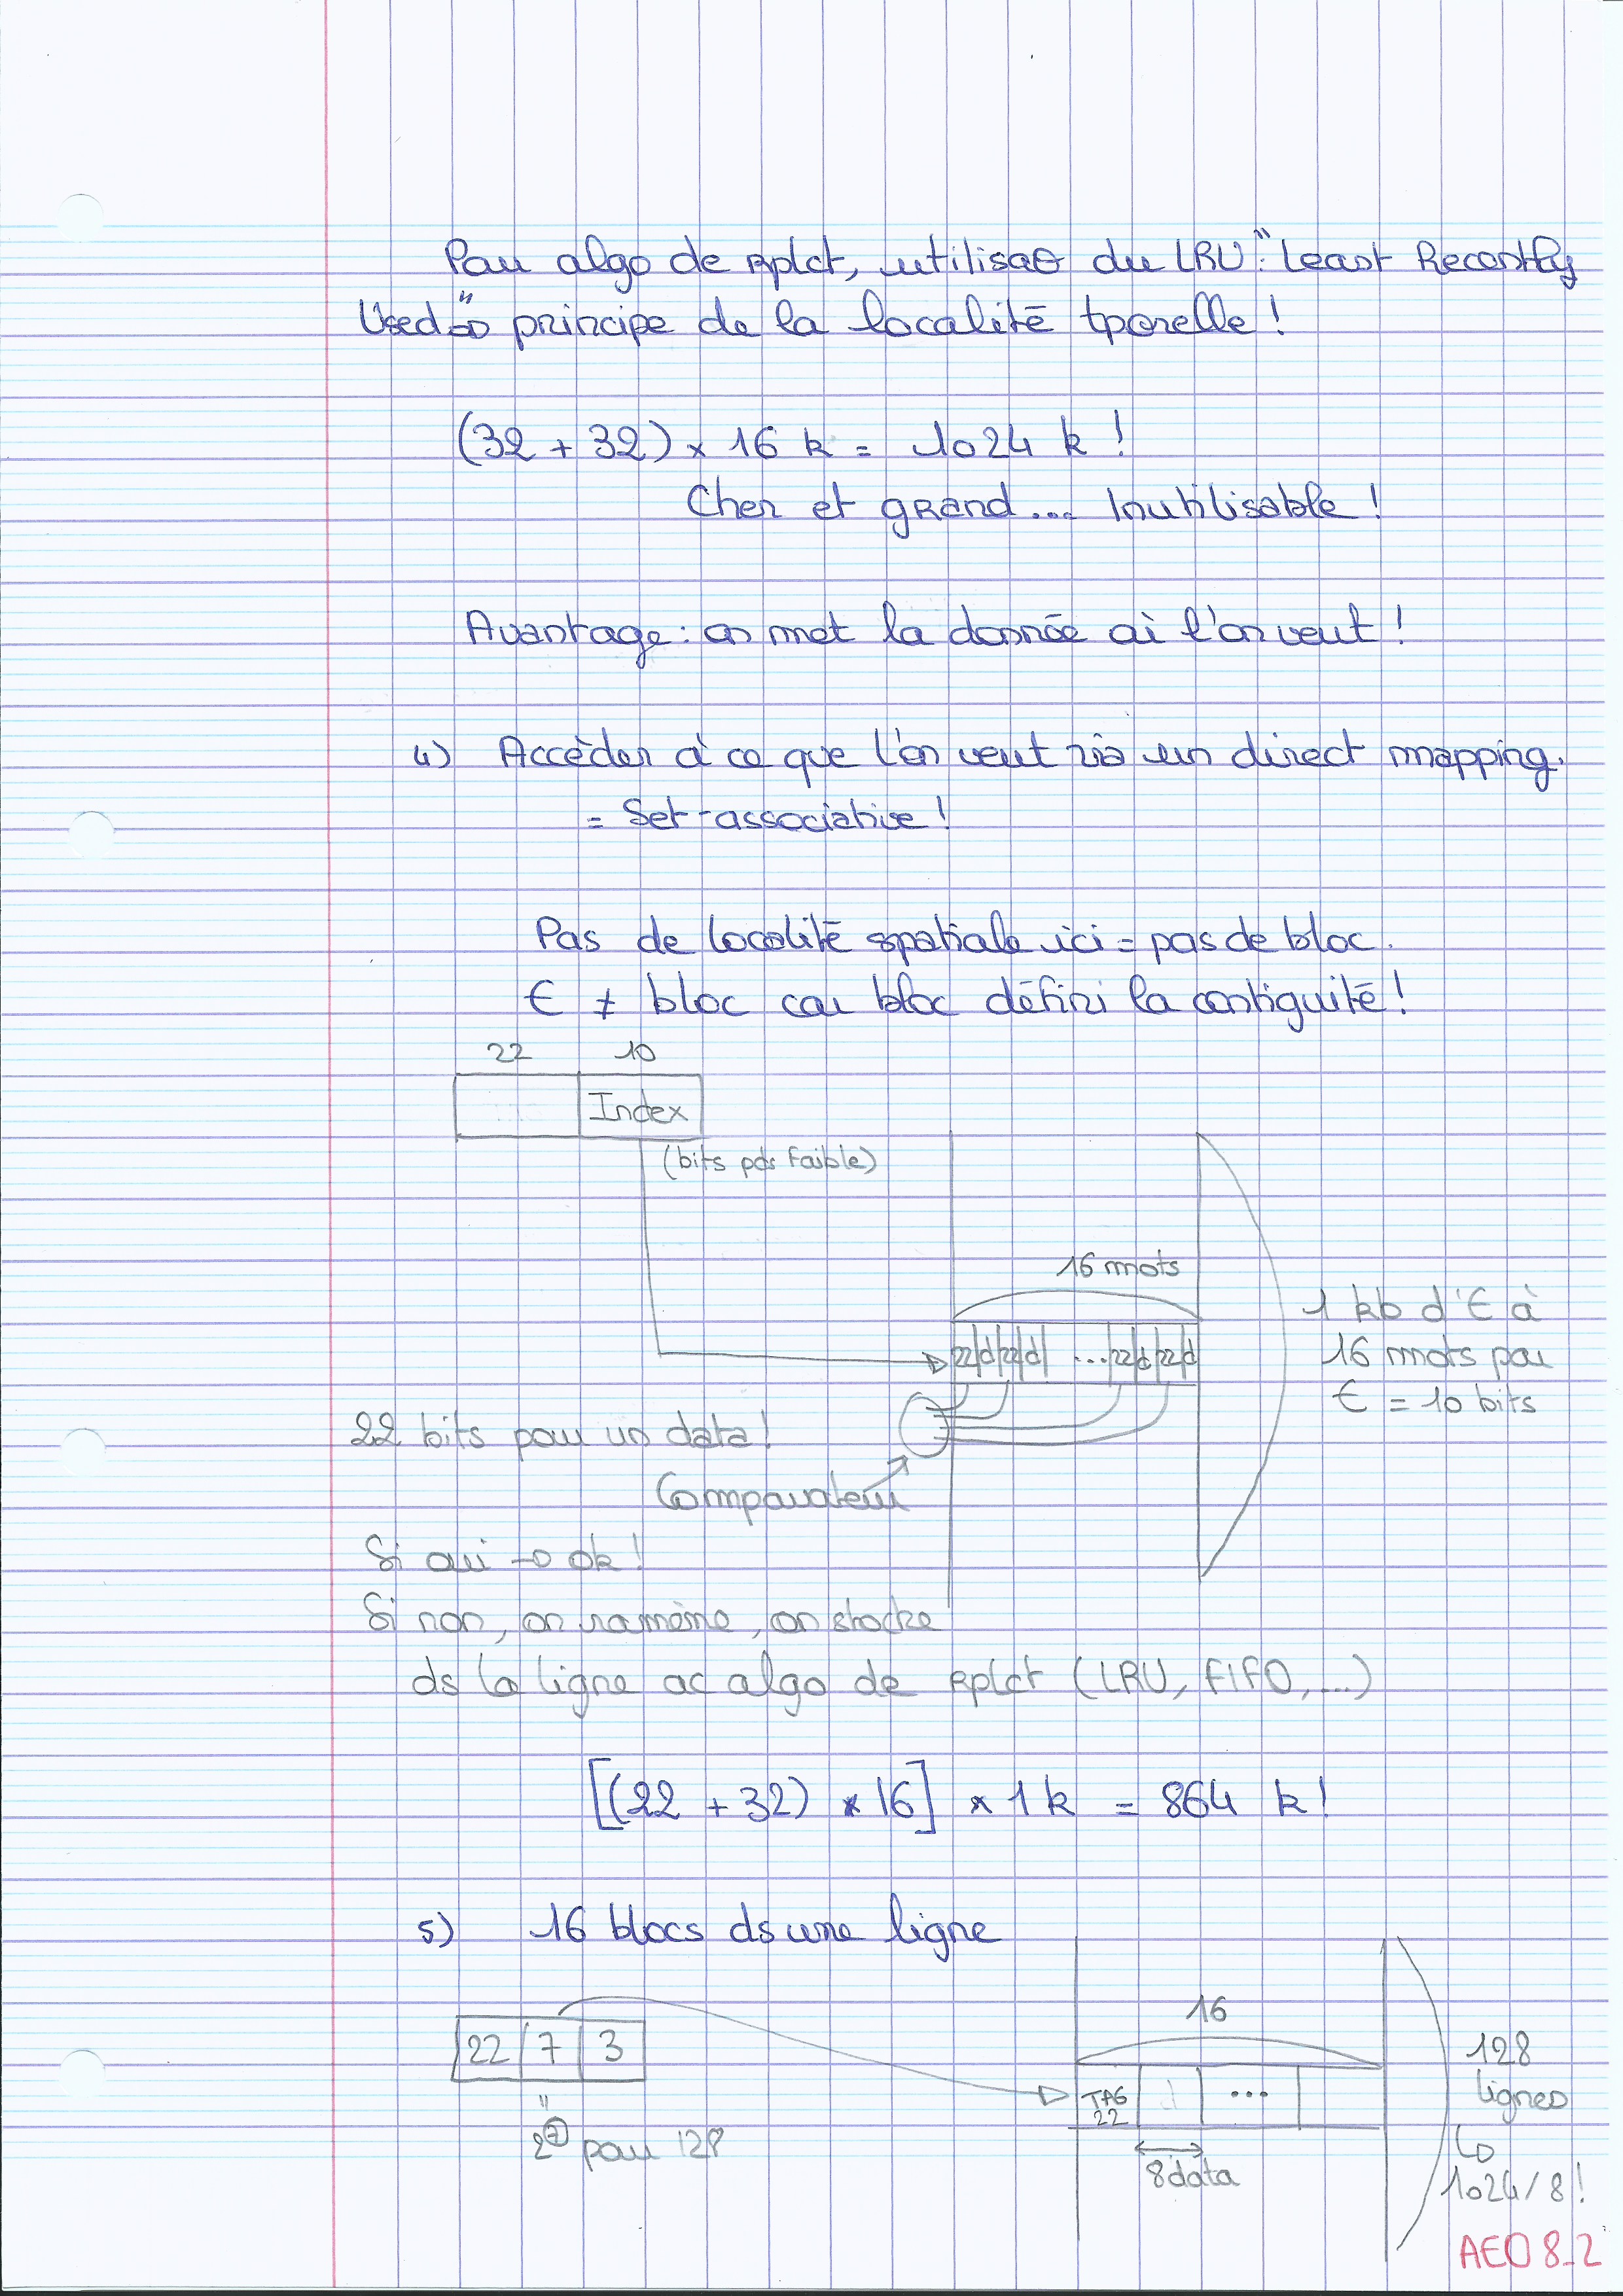 Pour algo de Rplct, utilisat° du LRU : "Least Recently
Used" → principe de la localité tporelle !
(32 + 32) × 16 k = 1024 k !
Cher et grand ... Inutilisable !
Avantage : on met la donnée où l'on veut !
4) Accèder à ce que l'on veut via un direct mapping.
= Set-associative !
Pas de localité spatiale ici = pas de bloc.
€ ≠ bloc car bloc défini la contiguité !
22 10
Index
(bits pds faible)
16 mots
1 kb d'€ à
16 mots par
€ = 10 bits
22|d|22|d| ... 22|d|22|d
22 bits pour un data !
Comparateur
Si oui → ok !
Si non, on ramène, on stocke
ds la ligne ac algo de Rplct (LRU, FIFO, ...)
[(22 + 32) * 16] * 1 k = 864 k !
5) 16 blocs ds une ligne
22 7 3
"
2^7 pour 128
16
TAG
22
...
8 data
128
lignes
↳
1024/8 !
AEO 8_2